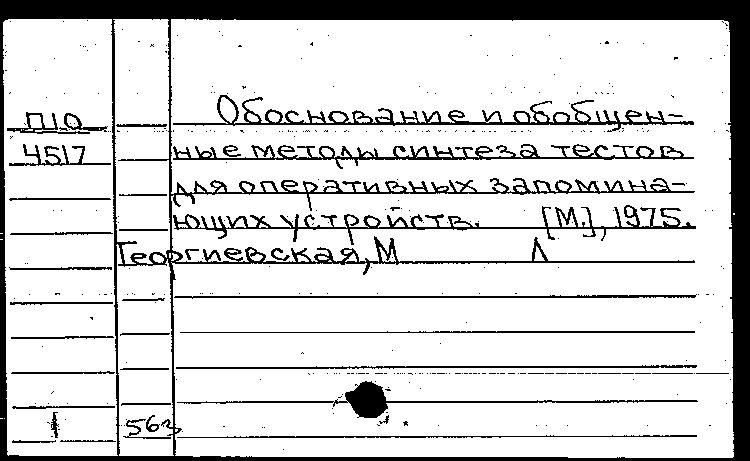 П10
4517
Обоснование и обобщен-
ные методы синтеза тестов
для оперативных запомина-
ющих устройств. [М.], 1975.
Георгиевская, М Л
1 563